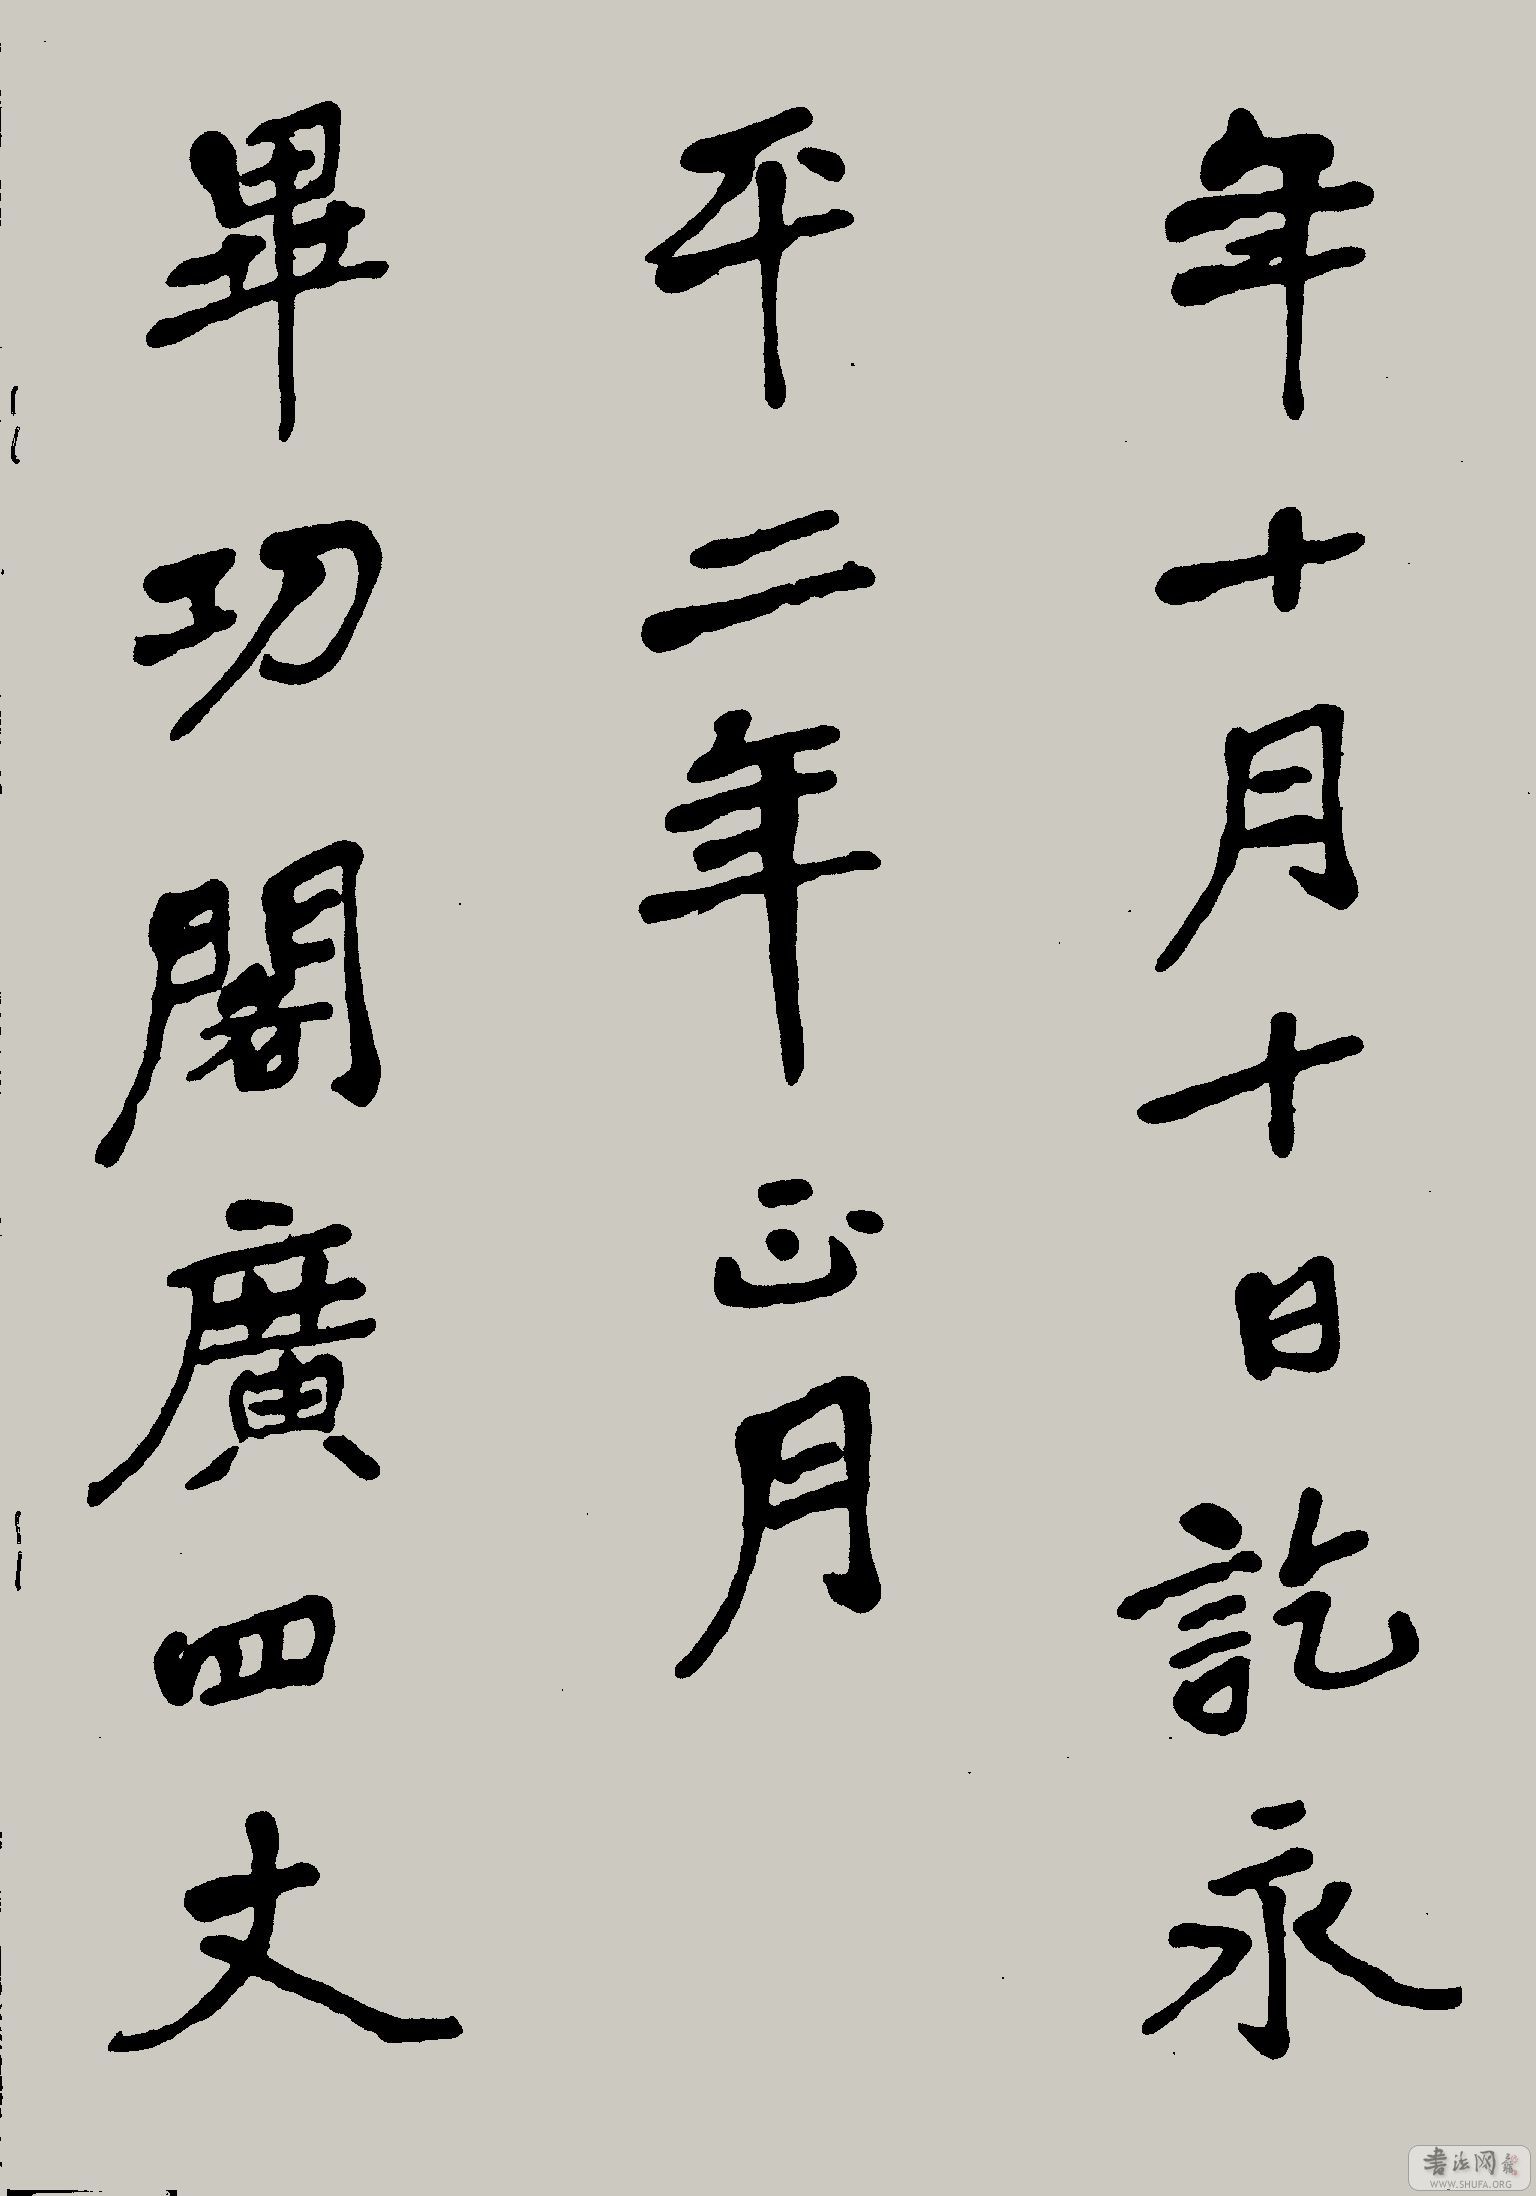 年十月十日訖永
平二年正月
畢功閣廣四丈
書法网
WWW.SHUFA.ORG